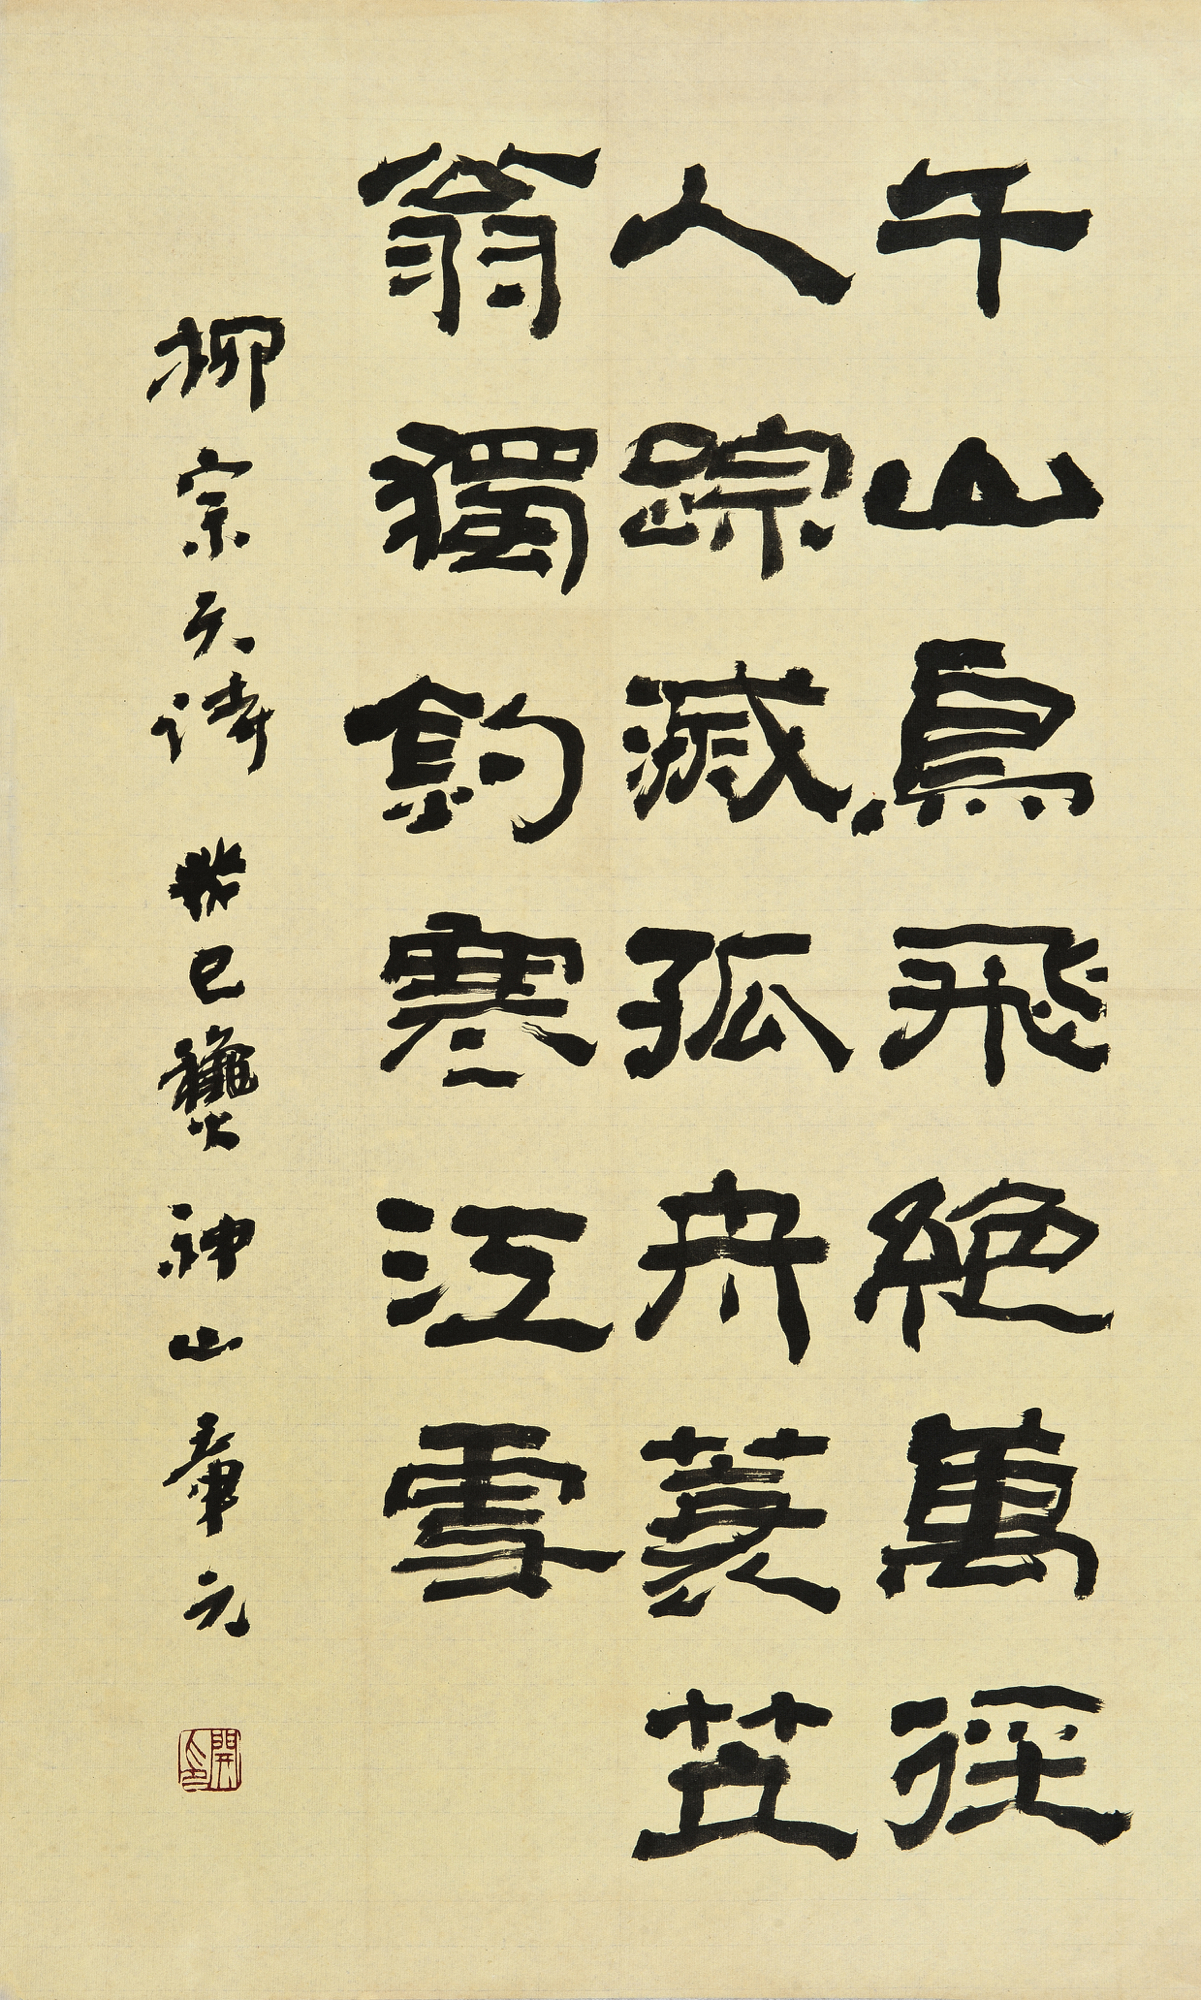 千山鳥飛絕萬徑
人踪滅孤舟蓑笠
翁獨釣寒江雪
柳宗元詩 癸巳龝神山章元